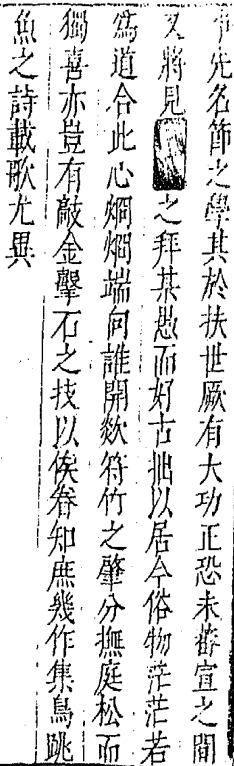 先名節之學其於扶世厥有大功正恐未審宣之間
又將見之拜某愚而好古拙以居今俗物茫茫若
為道合此心炯炯端向誰開欻符竹之肇分撫庭松而
獨喜亦豈有敲金擊石之技以俟眷知庶幾作集鳥跳
魚之詩載歌尤異